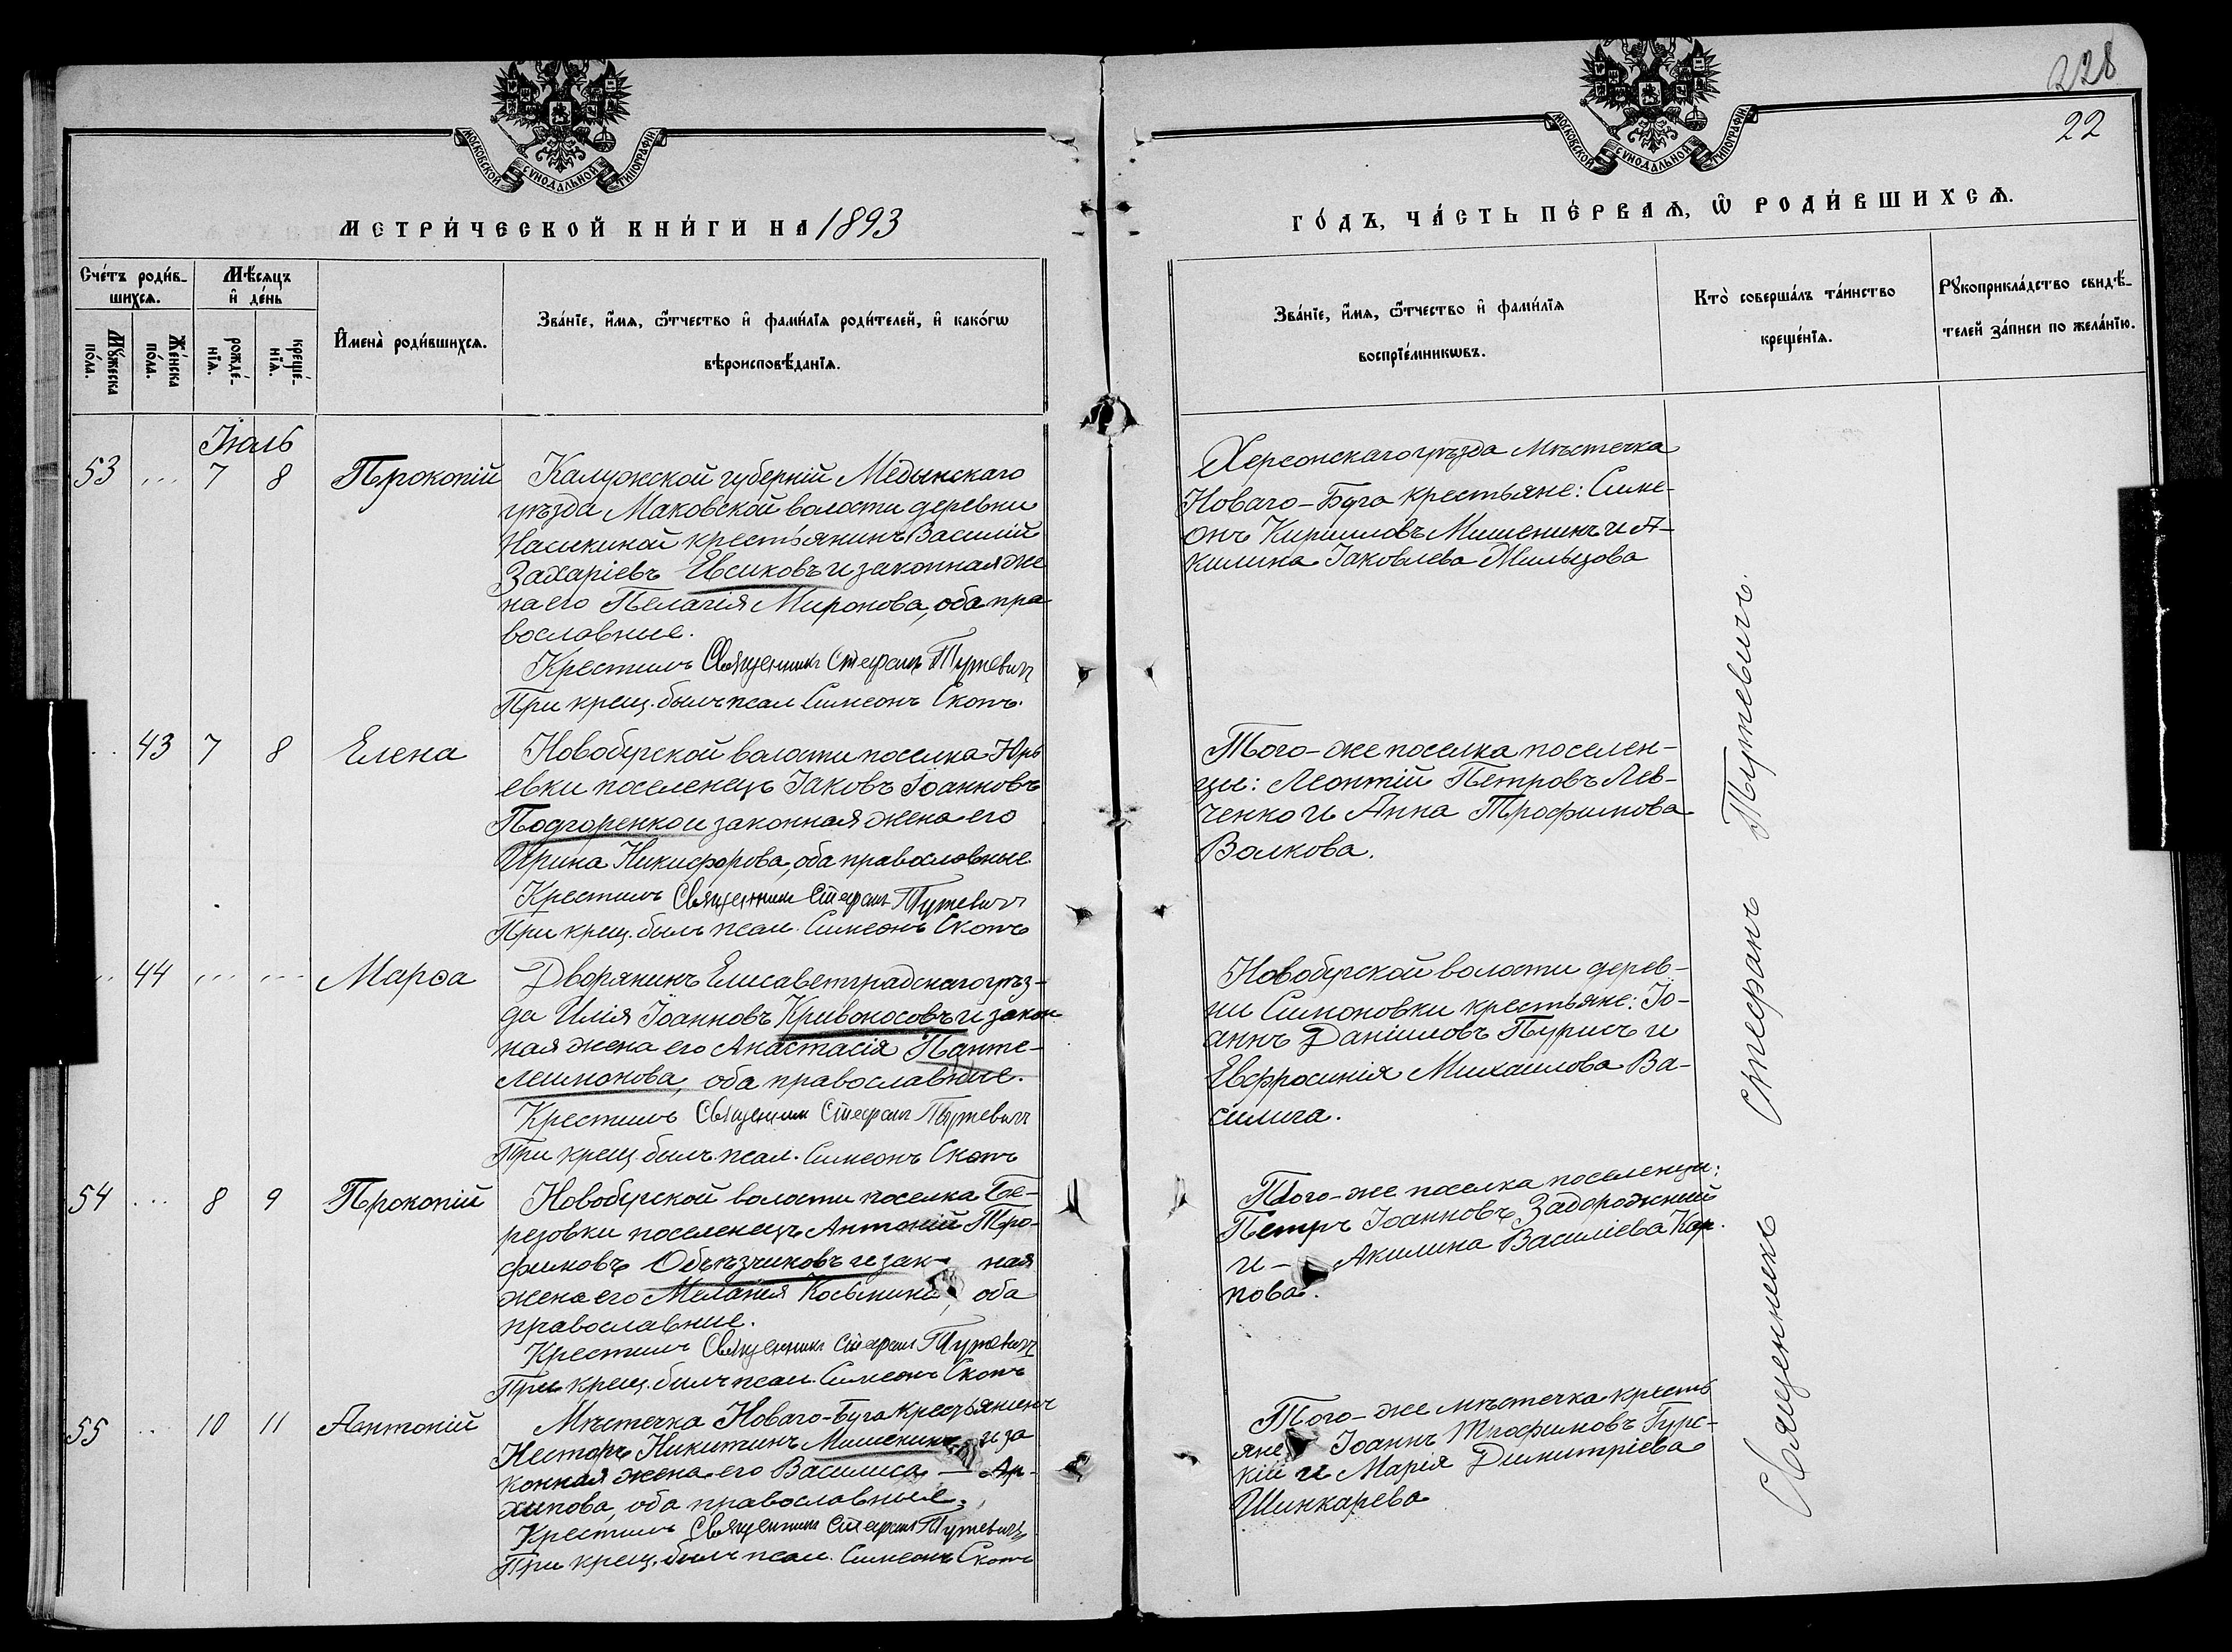 228
22
МОСКОВСКОЙ СѴНОДАЛЬНОЙ ТИПОГРАФІИ
МОСКОВСКОЙ СѴНОДАЛЬНОЙ ТИПОГРАФІИ
МЕТРИ́ЧЕСКОЙ КНИ́ГИ НА 1893
ГО́ДЪ, ЧА́СТЬ ПЕ́РВАѦ, Ѡ҆ РОДИ́ВШИХСѦ.
Сче́тъ роди́в-
шихсѧ.
Мꙋ́жеска по́ла.
Же́нска по́ла.
Мѣ́сяцъ
и҆ де́нь
рожде́-
нїѧ.
креще́-
нїѧ.
И҆мена̀ роди́вшихсѧ.
Зва́нїе, и҆́мѧ, ѻ҆́тчество и҆ фами́лїѧ роди́телей, и҆ како́гѡ
вѣроисповѣ́данїѧ.
Зва́нїе, и҆́мѧ, ѻ҆́тчество и҆ фами́лїѧ
воспрїе́мникѡвъ.
Кто̀ соверша́лъ та́инство
креще́нїѧ.
Рꙋкоприкла́дство свидѣ́-
телей за́писи по жела́нїю.
Іюль
53 ... 7 8 Прокопій
Калужской губерніи Медынскаго
уѣзда Маковской волости деревни
крестьянинъ Василій
Захаріевъ Евсиковъ и законная же
на его Пелагія Миронова, оба пра
вославные.
Крестилъ Священникъ Стефанъ Путевичъ
При крещ. былъ псал. Симеонъ Скопъ.
Херсонскаго уѣзда Мѣстечка
Новаго-Буга крестьяне: Симе-
онъ Кирилловъ Мишенинъ и А-
килина Іаковлева
.. 43 7 8 Елена
Новобугской волости поселка Юрь
евки поселенецъ Іаковъ Іоанновъ
Подгоренко и законная жена его
Ирина Никифорова, оба православные
Крестилъ Священникъ Стефанъ Путевичъ
При крещ. былъ псал. Симеонъ Скопъ
Того-же поселка поселен-
цы: Леонтій Петровъ Лев-
ченко и Анна Трофимова
Волкова.
.. 44 ... ... Марѳа
Дворянинъ Елисаветградскаго уѣз-
да Илія Іоанновъ Кривоносовъ и закон
ная жена его Анастасія Панте-
леимонова, оба православные.
Крестилъ Священникъ Стефанъ Путевичъ
При крещ. былъ псал. Симеонъ Скопъ
Новобугской волости дерев-
ни Симоновки крестьяне: Іо-
аннъ Даніиловъ и
Евфросинія Михаилова Ва-
силига.
54 ... 8 9 Прокопій
Новобугской волости поселка Бе-
резовки поселенецъ Антоній Тро-
фимовъ Объѣзчиковъ и зак- ная
жена его Меланія Косьмина, оба
православные.
Крестилъ Священникъ Стефанъ Путевичъ
При крещ. былъ псал. Симеонъ Скопъ
Того-же поселка поселенцы:
Петръ Іоанновъ Задорожный
и - Акилина Василіева Кар-
пова.
55 .. 10 11 Антоній
Мѣстечка Новаго-Буга Крестьянинъ
Несторъ Никитинъ Мишенинъ и за
конная жена его Василиса - Ар-
хипова, оба православные.
Крестилъ Священникъ Стефанъ Путевичъ
При крещ. былъ псал. Симеонъ Скопъ
Того-же мѣстечка кресть
яне Іоаннъ Трофимовъ Гурс-
кій и Марія Димитріева
Шинкарева
Священникъ Стефанъ Путевичъ.